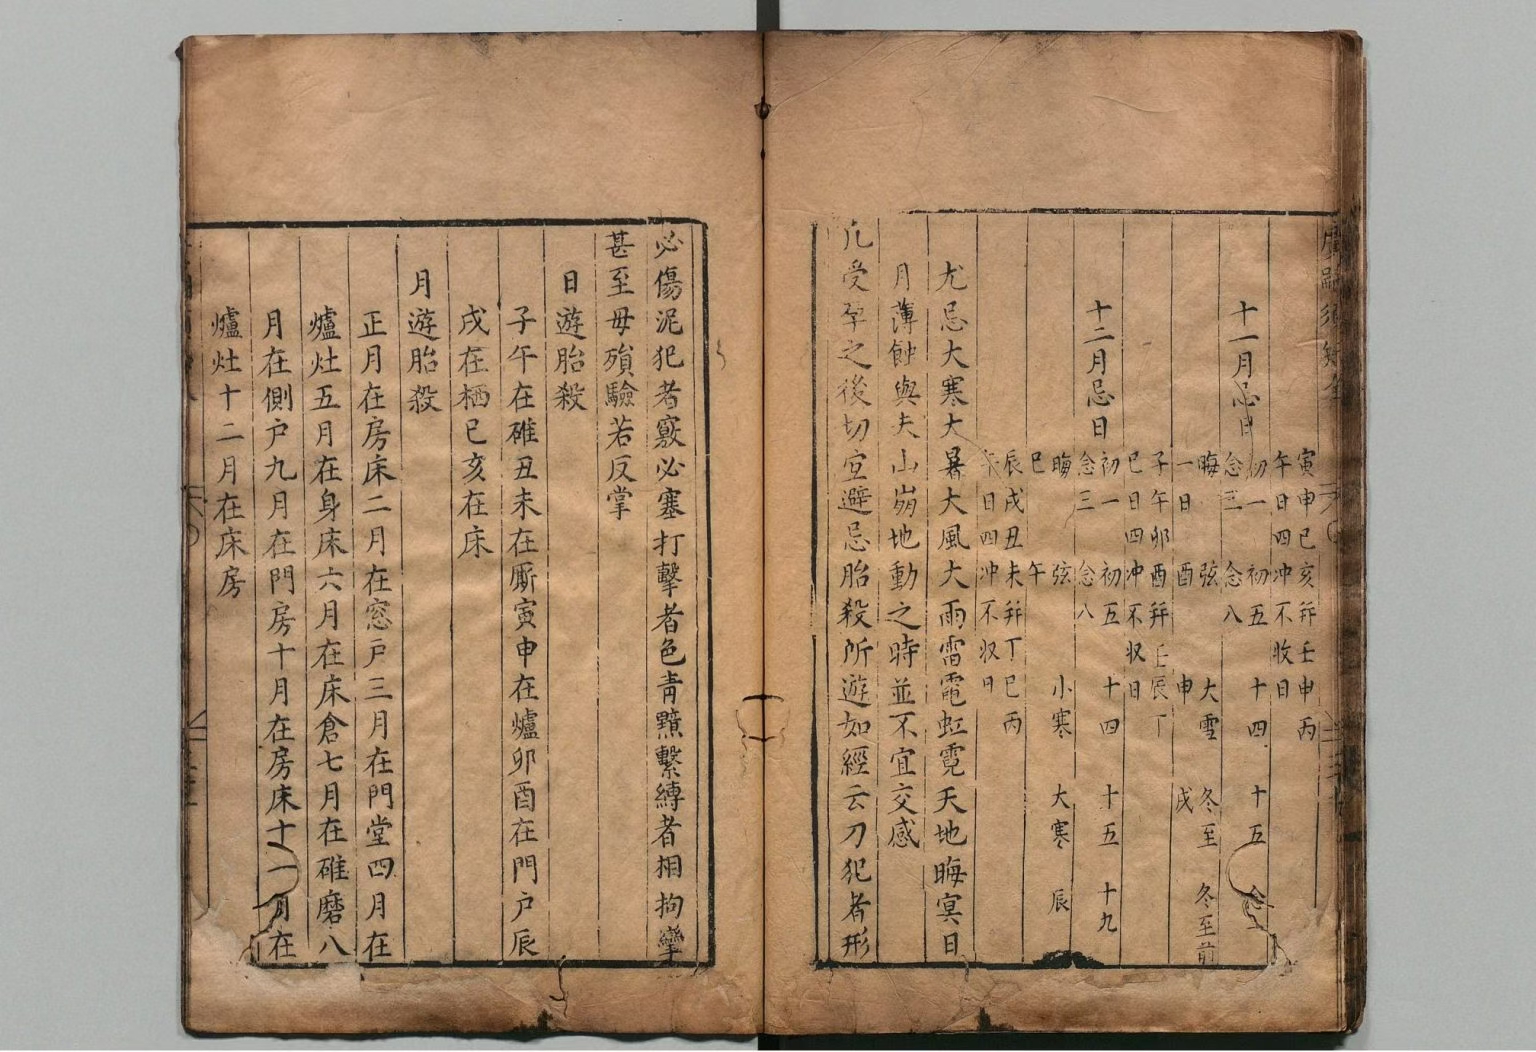 寅申巳亥并壬申丙
午日四冲不收日
十一月忌日
初一 初五 十四 十五
念三 念八
晦 弦 大雪 冬至 冬至前
一日 酉 申 戌
子午卯酉并壬辰丁
巳日四冲不収日
十二月忌日
初一 初五 十四 十五 十九
念三 念八
晦 弦 小寒 大寒 辰
巳 午
辰戌丑未并丁巳丙
日四冲不収日
尤忌大寒大暑大風大雨雷電虹霓天地晦冥日
月薄蝕與夫山崩地動之時並不宜交感
凡受孕之後切宜避忌胎殺所遊如經云刀犯者形
必傷泥犯者竅必塞打擊者色青黯繫縛者相拘攣
甚至母殞驗若反掌
日遊胎殺
子午在碓丑未在厮寅申在爐卯酉在門户辰
戌在栖巳亥在床
月遊胎殺
正月在房床二月在窓戶三月在門堂四月在
爐灶五月在身床六月在床倉七月在碓磨八
月在側户九月在門房十月在房床十一月在
爐灶十二月在床房